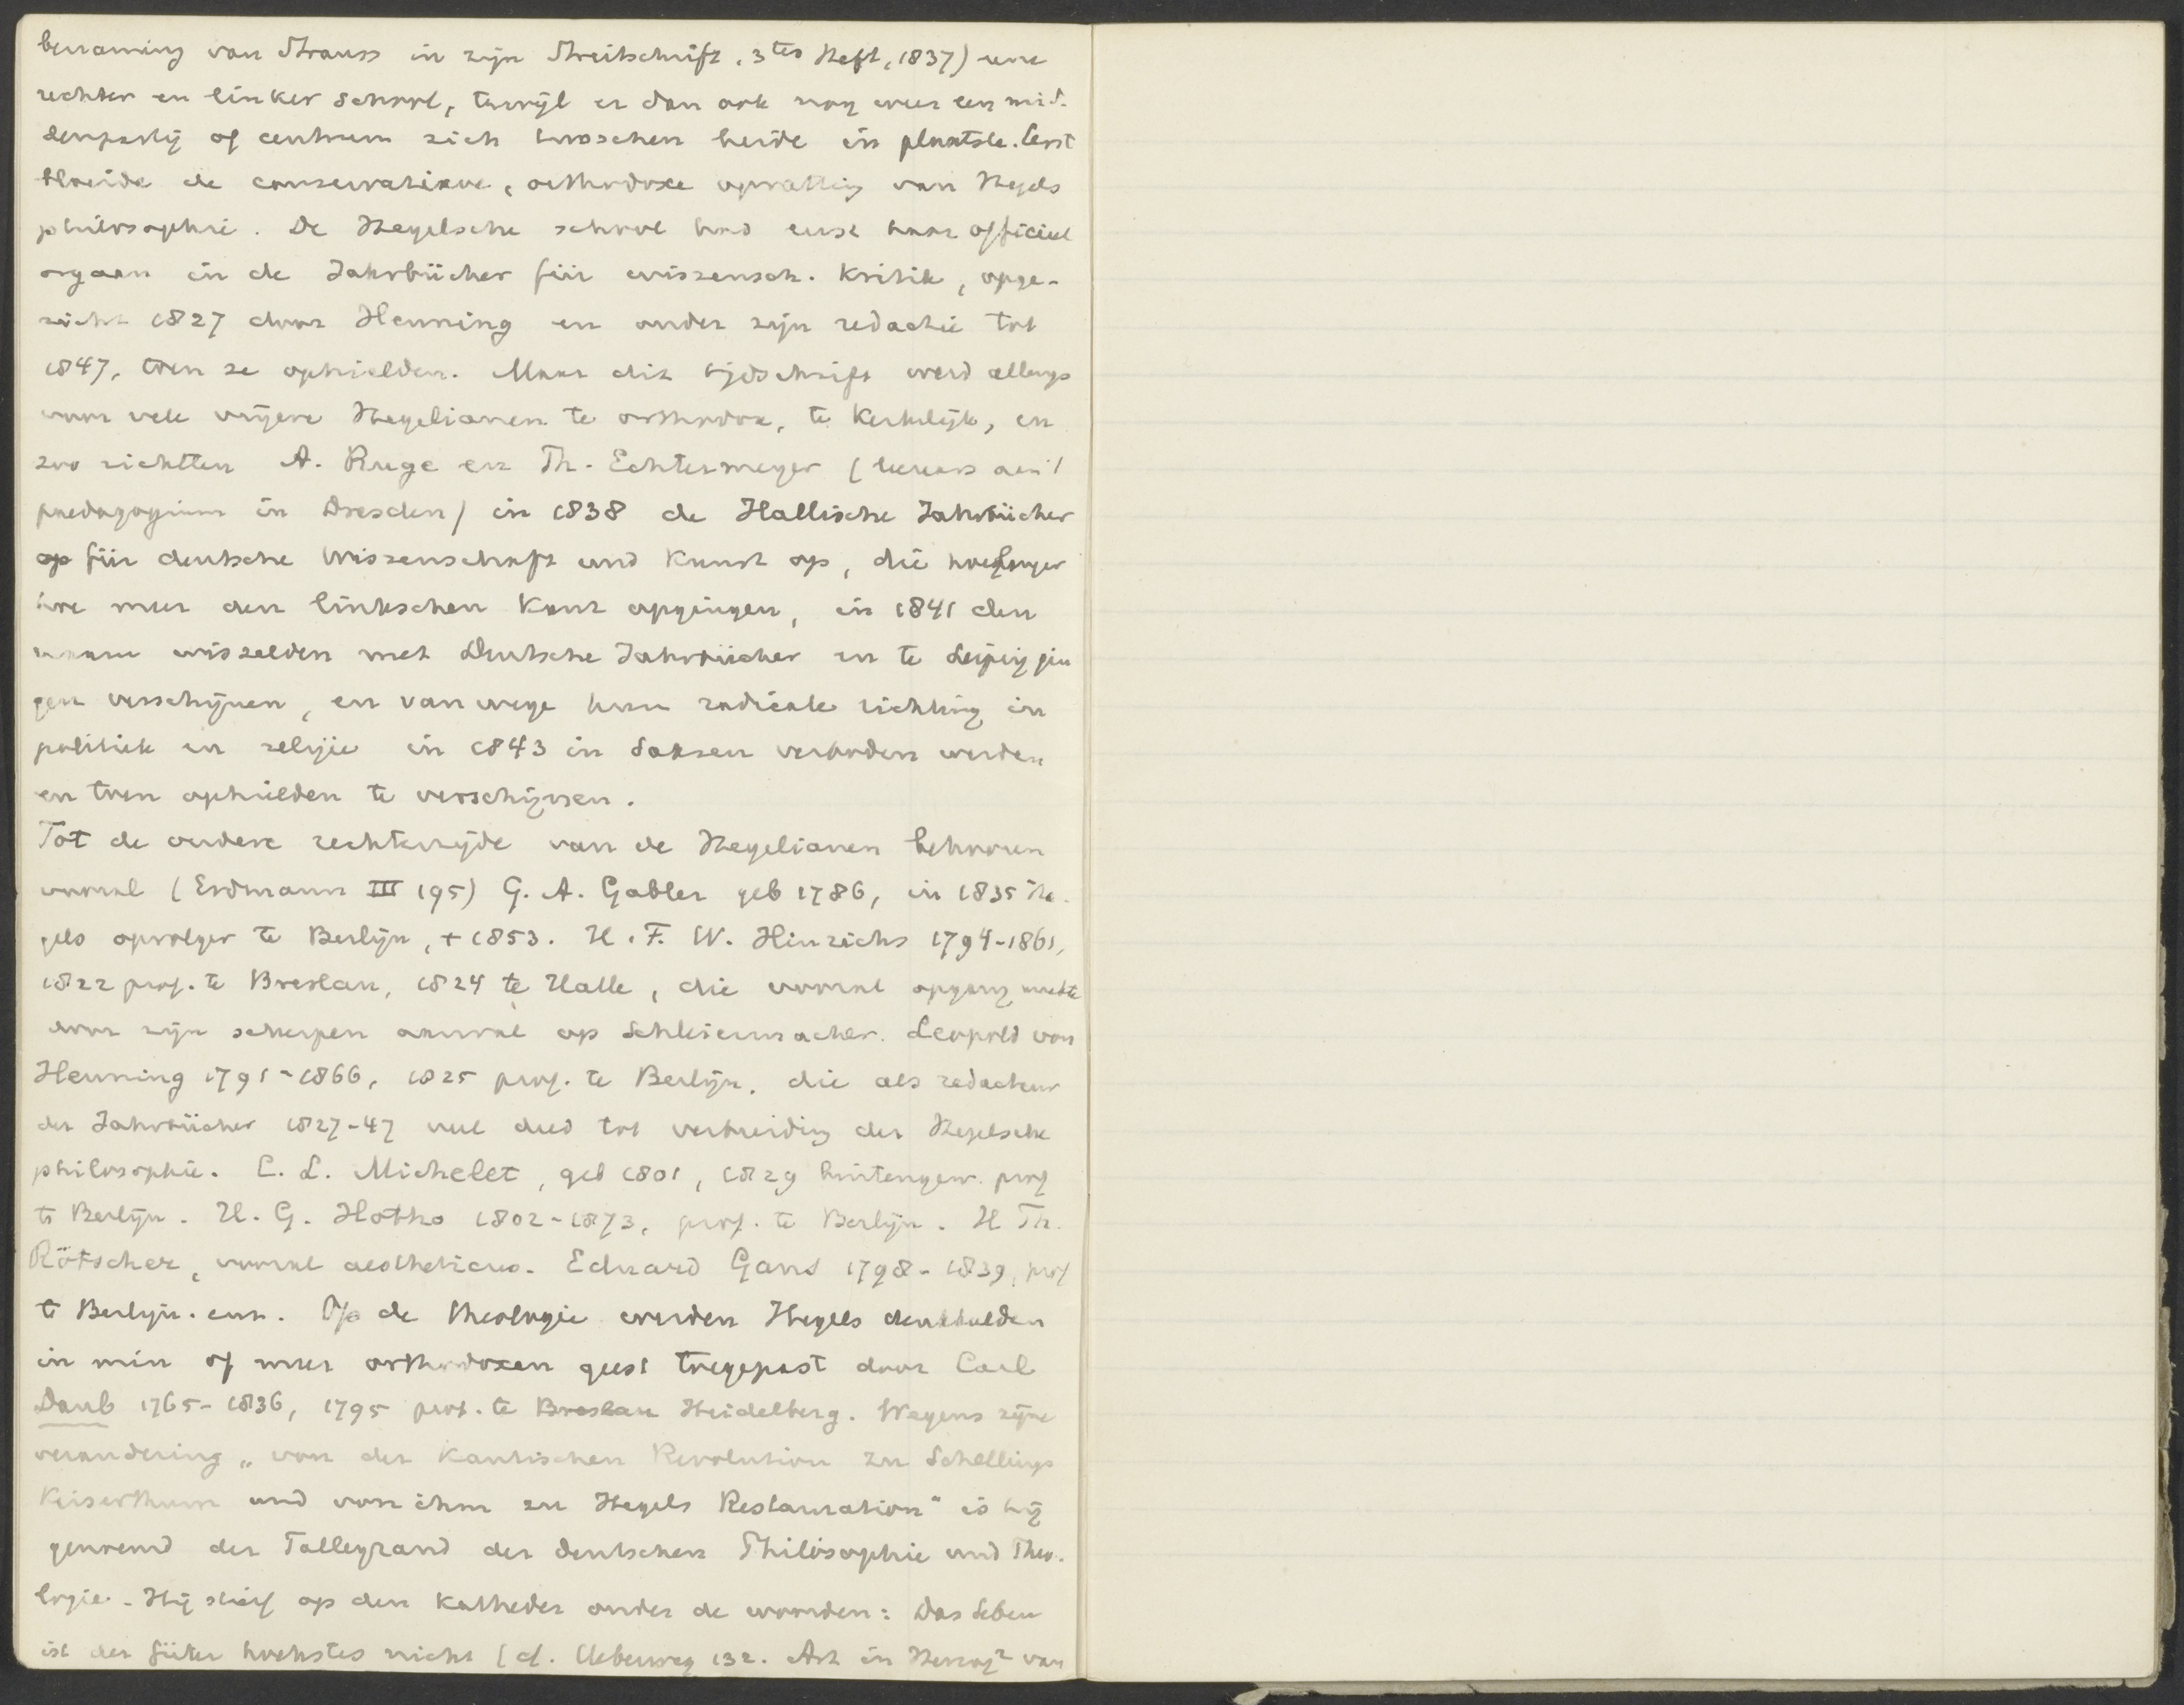 benaming van Strauss in zijn Streitschrift, 3tes Heft, 1837) eene
rechter en linker school, terwijl er dan ook nog weer een mid-
denpartij of centrum zich tusschen beide in plaatste. Eerst
bloeide de conservatieve, orthodoxe opvatting van Hegels
philosophie. De Hegelsche school had eerst haar officieel
orgaan in de Jahrbücher für wissensch. Kritik, opge-
richt 1827 door Henning en onder zijn redactie tot
1847, toen ze ophielden. Maar dit tijdschrift werd allengs
voor vele vrijere Hegelianen te orthodox, te kerkelijk, en
zoo richtten A. Ruge en Th. Echtermeyer (leeraars aan 't
paedagogium in Dresden) in 1838 de Hallische Jahrbücher
op für deutsche Wissenschaft und Kunst op, die hoelanger
hoe meer den linkschen kant opgingen, in 1841 den
naam wisselden met Deutsche Jahrbücher en te Leipzig gin
gen verschijnen, en vanwege hun radicale richting in
politiek en religie in 1843 in Saksen verboden werden
en toen ophielden te verschijnen.
Tot de oudere rechterzijde van de Hegelianen behooren
vooral (Erdmann III 195) G. A. Gabler geb 1786, in 1835 He-
gels opvolger te Berlijn, + 1853. H. F. W. Hinrichs 1794-1861,
1822 prof. te Breslau, 1824 te Halle, die vooral opgang maakte
door zijn scherpen aanval op Schleiermacher. Leopold von
Henning 1791-1866, 1825 prof. te Berlijn, die als redacteur
der Jahrbücher 1827-47 veel deed tot verbreiding der Hegelsche
philosophie. C. L. Michelet, geb 1801, 1829 buitengew. prof
te Berlijn. H. G. Hotho 1802-1873, prof. te Berlijn. H Th.
Rötscher, vooral aestheticus. Eduard Gans 1798-1839, prof
te Berlijn. enz. Op de theologie werden Hegels denkbeelden
in min of meer orthodoxen geest toegepast door Carl
Daub 1765-1836, 1795 prof. te Breslau Heidelberg. Wegens zijne
verandering „von der Kantischen Revolution zu Schellings
Keiserthum und von ihm zu Hegels Restauration" is hij
genoemd der Talleyrand der deutschen Philosophie und Theo-
logie. Hij stierf op den katheder onder de woorden: Das Leben
ist der Güter hoechstes nicht (cf. Ueberweg 132. Art in Herzog² van